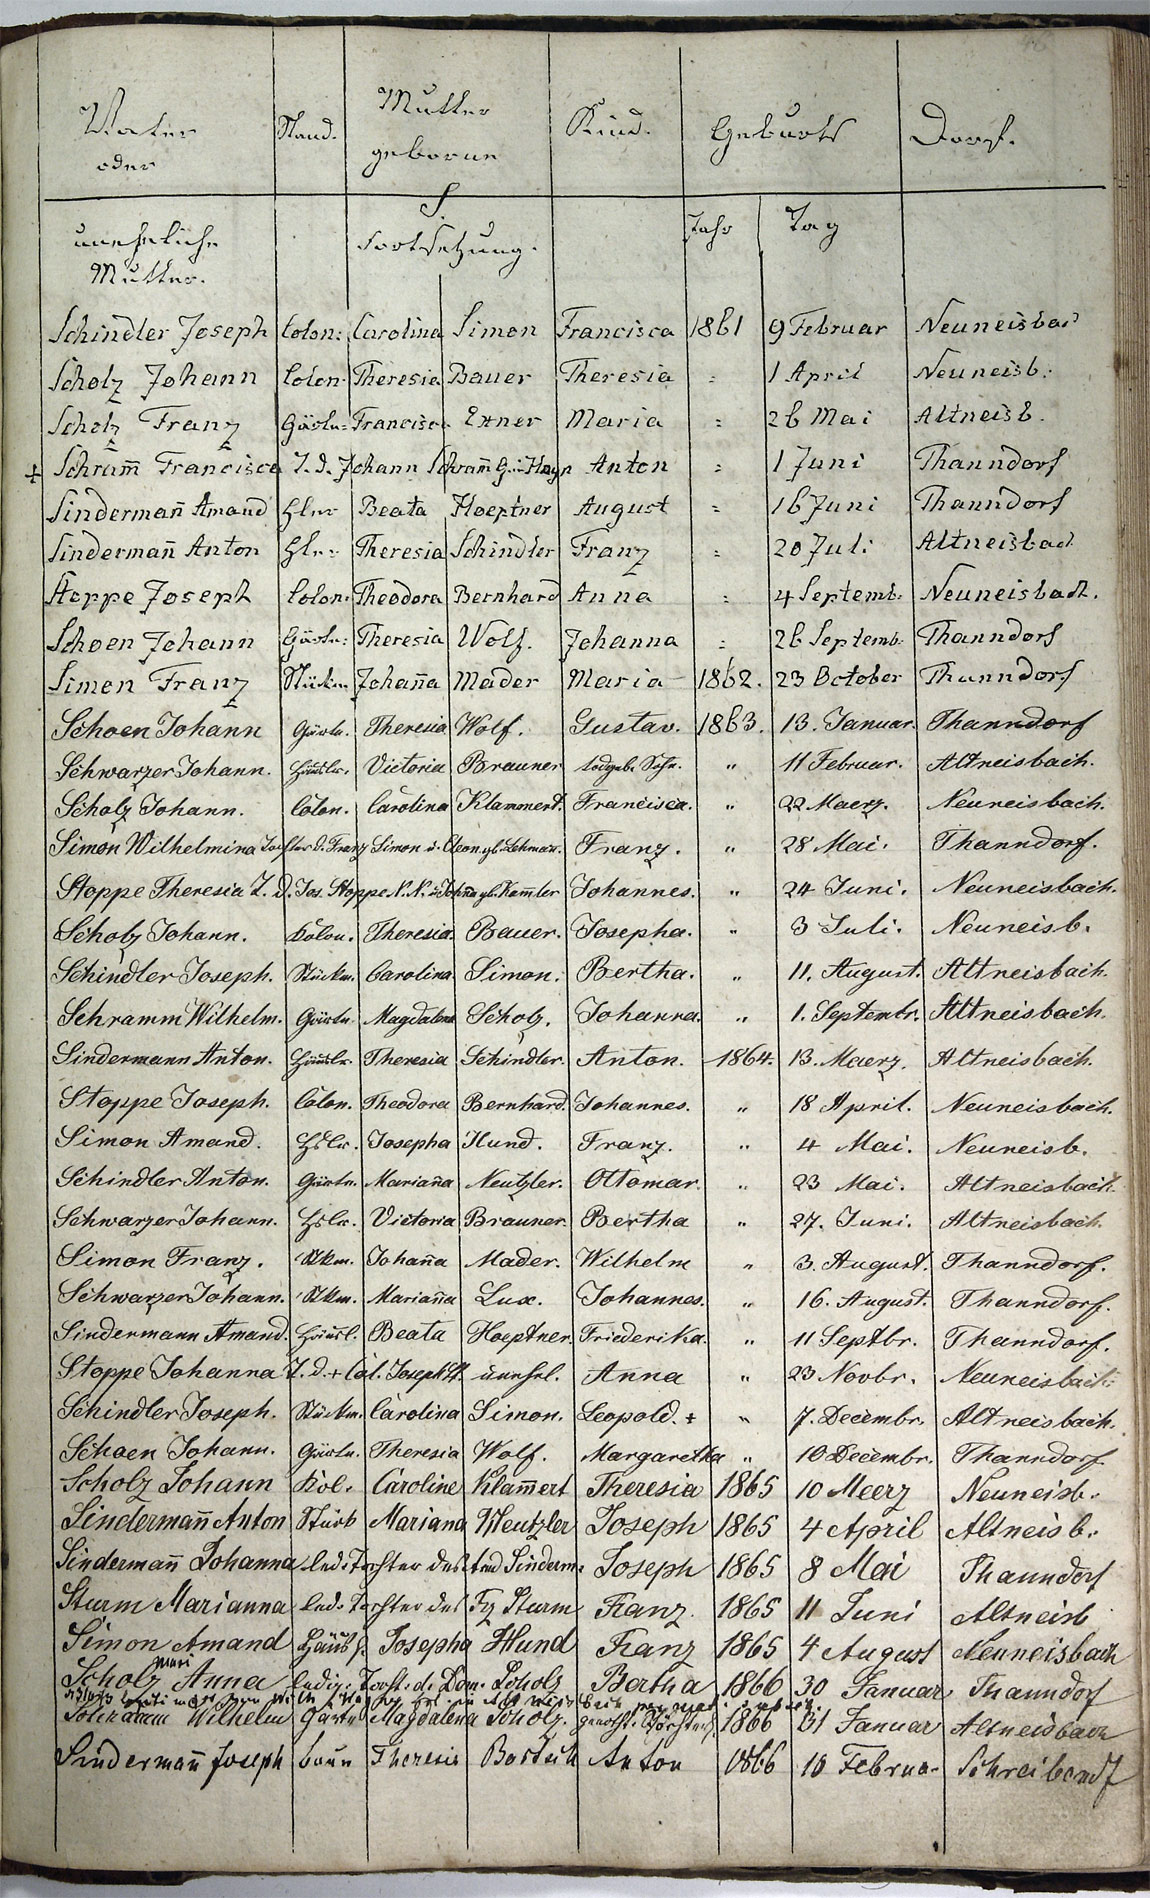 Vater Stand. Mutter Kind. Geburts Dorf.
oder geborne
S.
uneheliche Fortsetzung. Jahr Tag
Mutter.
Schindler Joseph Colon: Carolina Simon Francisca 1861 9 Februar Neuneisbach
Scholz Johann Colon: Theresia Bauer Theresia = 1 April Neuneisb:
Scholz Franz Gärtn= Francisca Exner Maria = 26 Mai Altneisb.
+ Schram̄ Francisca T. d. Johann Schram̄ Anton = 1 Juni Thanndorf
Sinderman̄ Amand Hlnr Beata Hoeptner August = 16 Juni Thanndorf
Sinderman̄ Anton Hlr: Theresia Schindler Franz = 20 Juli Altneisbach
Stoppe Joseph Colon: Theodora Bernhard Anna = 4 Septemb: Neuneisbach.
Schoen Johann Gärtn: Theresia Wolf. Johanna = 26 Septemb: Thanndorf
Simon Franz Stückm. Johan̄a Mader Maria 1862. 23 October Thanndorf
Schoen Johann Gärtn. Theresia Wolf. Gustav. 1863. 13. Januar. Thanndorf
Schwarzer Johann. Häuslr. Victoria Brauner todgeb. Sohn. " 11 Februar. Altneisbach.
Scholz Johann. Colon. Carolina Klamment. Francisca. " 22 Maerz. Neuneisbach.
Simon Wilhelmina Tochter d. Franz Simon u. Cleon. gb. Lehman. Franz. " 28 Mai. Thanndorf.
Stoppe Theresia T. d. Jos. Stoppe N. N. u Johna gb. Kammler Johannes. " 24 Juni. Neuneisbach.
Scholz Johann. Colon. Theresia. Bauer. Josepha. " 3 Juli. Neuneisb.
Schindler Joseph. Stückm. Carolina Simon. Bertha. " 11. August. Altneisbach.
Schramm Wilhelm. Gärtn. Magdalena Scholz. Johanna. " 1. Septembr. Altneisbach.
Sindermann Anton. Häuslr. Theresia Schindler. Anton. 1864. 13. Maerz. Altneisbach.
Stoppe Joseph. Colon. Theodora Bernhard. Johannes. " 18 April. Neuneisbach.
Simon Amand. Hslr. Josepha Hund. Franz. " 4 Mai. Neuneisb.
Schindler Anton. Gärtn. Marian̄a Neutzler. Ottomar. " 23 Mai. Altneisbach.
Schwarzer Johann. Hslr. Victoria Brauner. Bertha " 27. Juni. Altneisbach.
Simon Franz. Stkm. Johan̄a Mader. Wilhelm " 3. August. Thanndorf.
Schwarzer Johann. Stkm. Marian̄a Lux. Johannes. " 16. August. Thanndorf.
Sindermann Amand. Häusl. Beata Hoeptner. Friederika. " 11 Septbr. Thanndorf.
Stoppe Johanna T. d. + Col. Joseph St. unehl. Anna " 23 Novbr. Neuneisbach.
Schindler Joseph. Stückm. Carolina Simon. Leopold. + " 7. Decembr. Altneisbach.
Schoen Johann. Gärtn. Theresia Wolf. Margaretha " 10 Decembr. Thanndorf
Scholz Johann Kol. Caroline Klam̄ert Theresia 1865 10 Meerz Neuneisb.
Sinderman̄ Anton Stück Mariana Neutzler Joseph 1865 4 April Altneisb.
Sinderman̄ Johanna led. Tochter des Sinderm. Joseph 1865 8 Mai Thanndorf
Sturm Marianna led. Tochter des Fz Sturm Franz 1865 11 Juni Altneisb
Simon Amand Häusl. Josepha Hund Franz 1865 4 August Neuneisbach
Mari
Scholz Anna ledig. Tocht. d. Dom. Scholz Bertha 1866 30 Januar Thanndorf
Schramm Wilhelm Gärtn Magdalena Scholz. 1866 31 Januar Altneisbach
Sinderman̄ Joseph baur Theresia Bartsch Anton 1866 10 Februa. Schreibendf